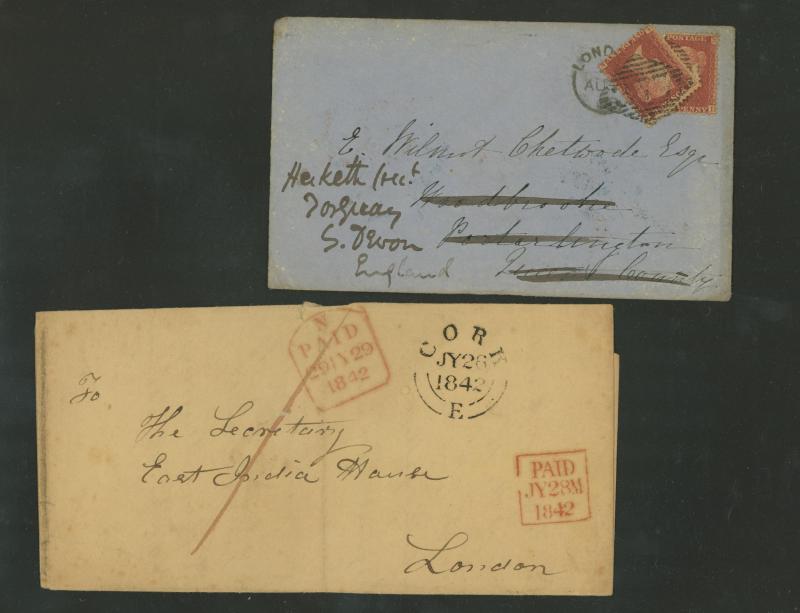 LOND
AU
POSTAGE
PENNY
E. Wilmot Chetwode Esqr
Hesketh Cresct
Torquay
S. Devon
England
Woodbrooke
Portarlington
Queen's County
N
PAID
29 JY 29
1842
CORK
JY 28
1842
E
To
The Secretary
East India House
London
1
PAID
JY 28 M
1842